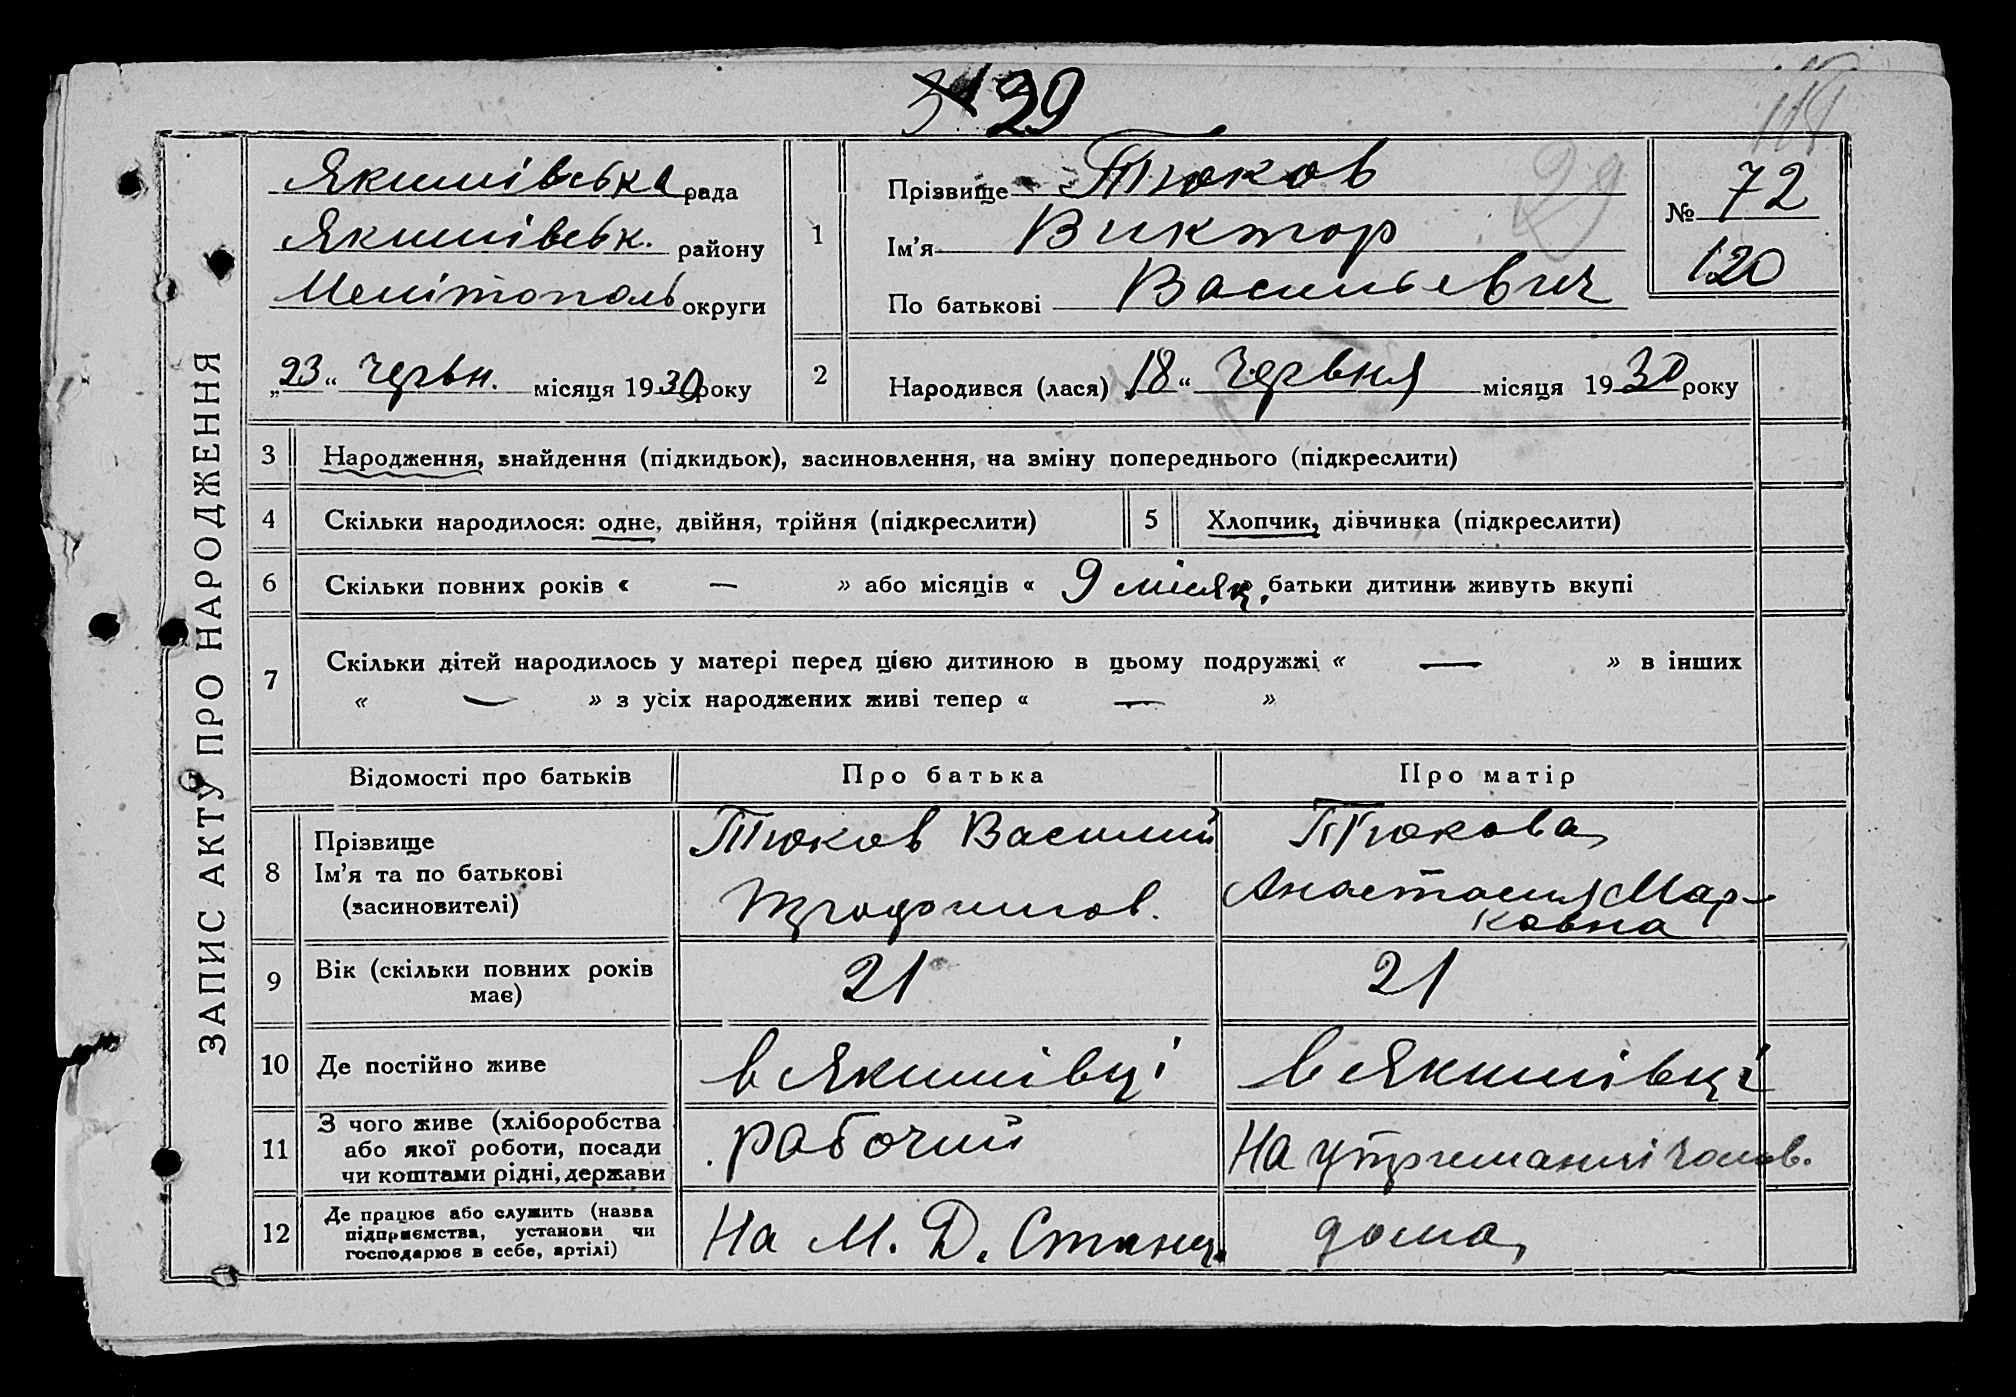 29
118
ЗАПИС АКТУ ПРО НАРОДЖЕННЯ
Якимівська рада
Якимівськ. району
Мелітополь округи
„23“ червн. місяця 1930 року
1
Прізвище Тюков
Ім’я Виктор
По батькові Васильевич
29
№ 72
120
2
Народився (лася) 18“ Червня місяця 1930 року
3 Народження, знайдення (підкидьок), засиновлення, на зміну попереднього (підкреслити)
4 Скільки народилося: одне, двійня, трійня (підкреслити) 5 Хлопчик, дівчинка (підкреслити)
6 Скільки повних років « — » або місяців « 9 місяц. батьки дитини живуть вкупі
7 Скільки дітей народилось у матері перед цією дитиною в цьому подружжі « — » в інших
« — » з усіх народжених живі тепер « — »
Відомості про батьків Про батька Про матір
8
Прізвище
Ім’я та по батькові
(засиновителі)
Тюков Василий
Тюкова
Анастасия Мар-
ковна
9 Вік (скільки повних років
має)
21 21
10 Де постійно живе в Якимівці в Якимівці
11
З чого живе (хліборобства
або якої роботи, посади
чи коштами рідні, держави
рабочий
На утриманні чолов.
12
Де працює або служить (назва
підприємства, установи чи
господарює в себе, артілі)
На М. Д. Станц.
дома